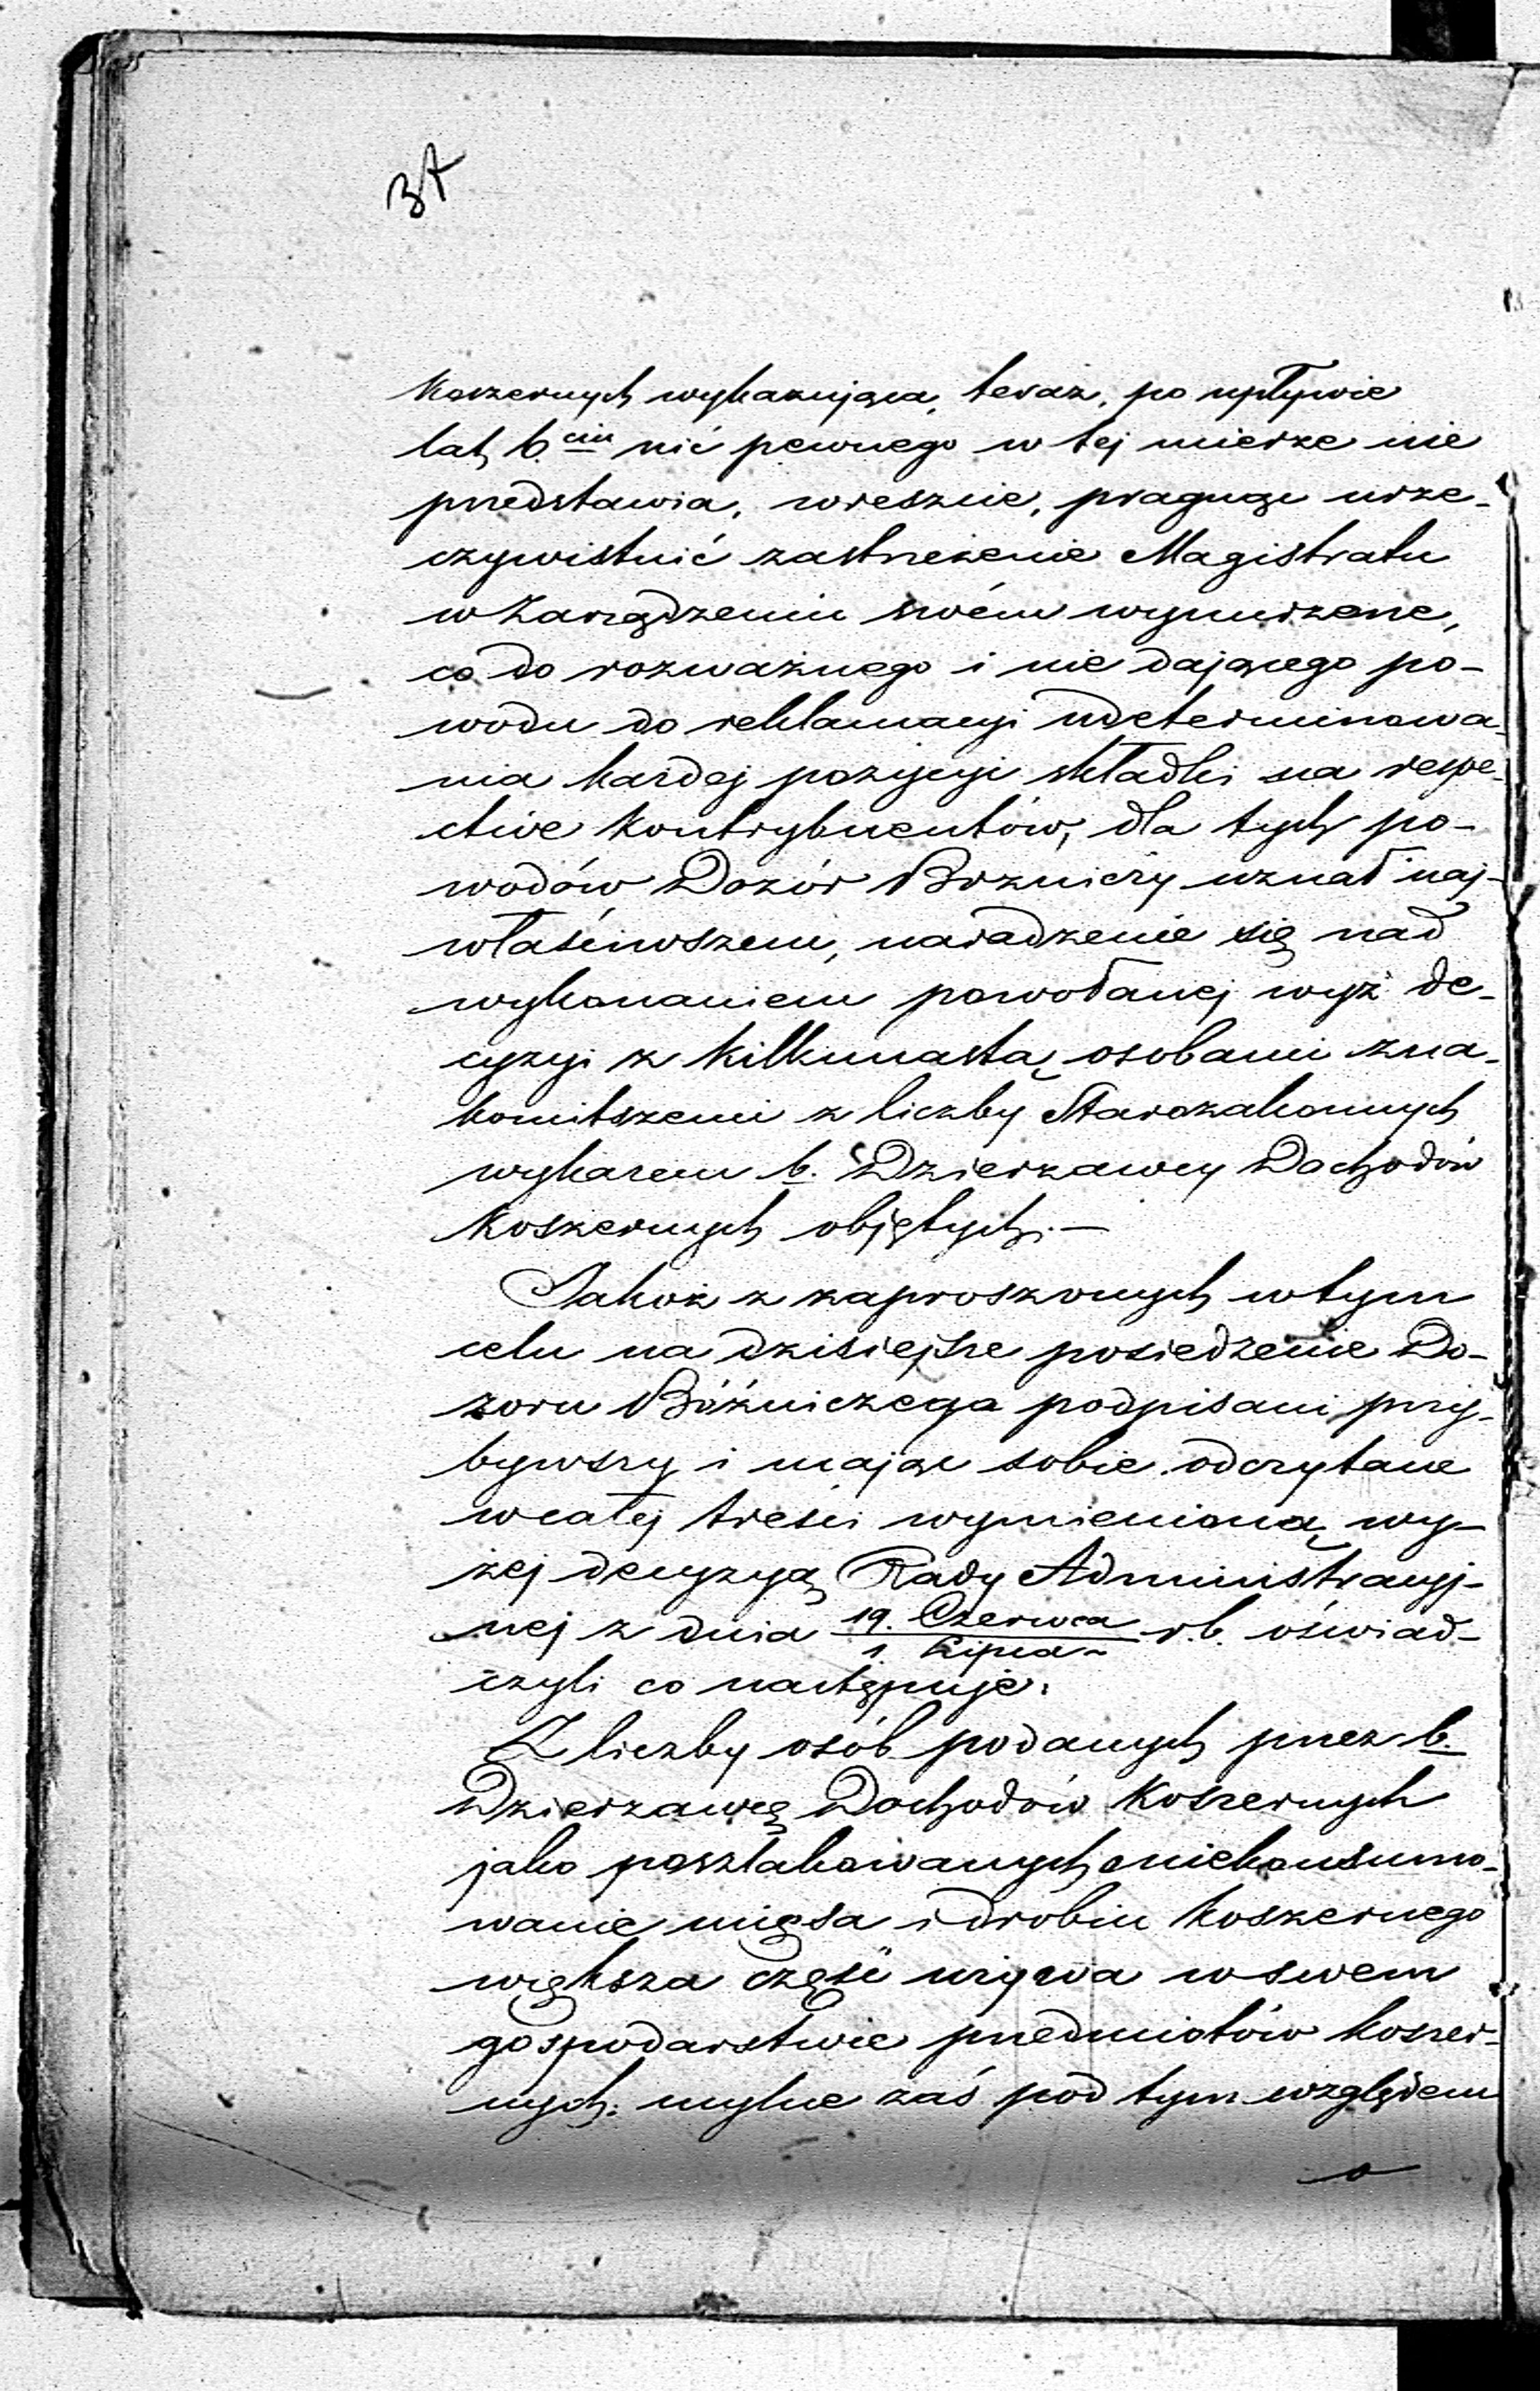 37
koszernych wykazująca, teraz, po upływie
lat 6.ciu nić pewnego w tej mierze nie
przedstawia, wreszcie, pragnąc urze-
czywistnić zastrzeżenie Magistratu
w Zarządzeniu swém wynurzone,
co do rozważnego i nie dającego po-
wodu do reklamacyi udeterminowa-
nia każdej pozycyi składki na respe-
ctive kontrybuentów, dla tych po-
wodów Dozór Bożniczy uznał naj-
właściwszem, naradzenie się nad
wykonaniem powołanej wyż de-
cyzyi z kilkunastą osobami zna-
komitszemi z liczby Starozakonnych
wykazem b. Dzierżawcy Dochodów
koszernych objętych.—
Jakoż z zaproszonych w tym
celu na dzisiejsze posiedzenie Do-
zoru Bóżniczego podpisani przy-
bywszy i mając sobie odczytane
w całej treści wymienioną wy-
żej decyzyą Rady Administracyj-
nej z dnia 19. Czerwca / 1. Lipca r.b. oświad-
czyli co następuje.
Z liczby osób podanych przez b.
Dzierżawcę Dochodów Koszernych
jako poszlakowanych o niekonsumo-
wanie mięsa i drobiu koszernego
większa część używa w swem
gospodarstwie przedmiotów koszer-
nych: mylne zaś pod tym względem
o